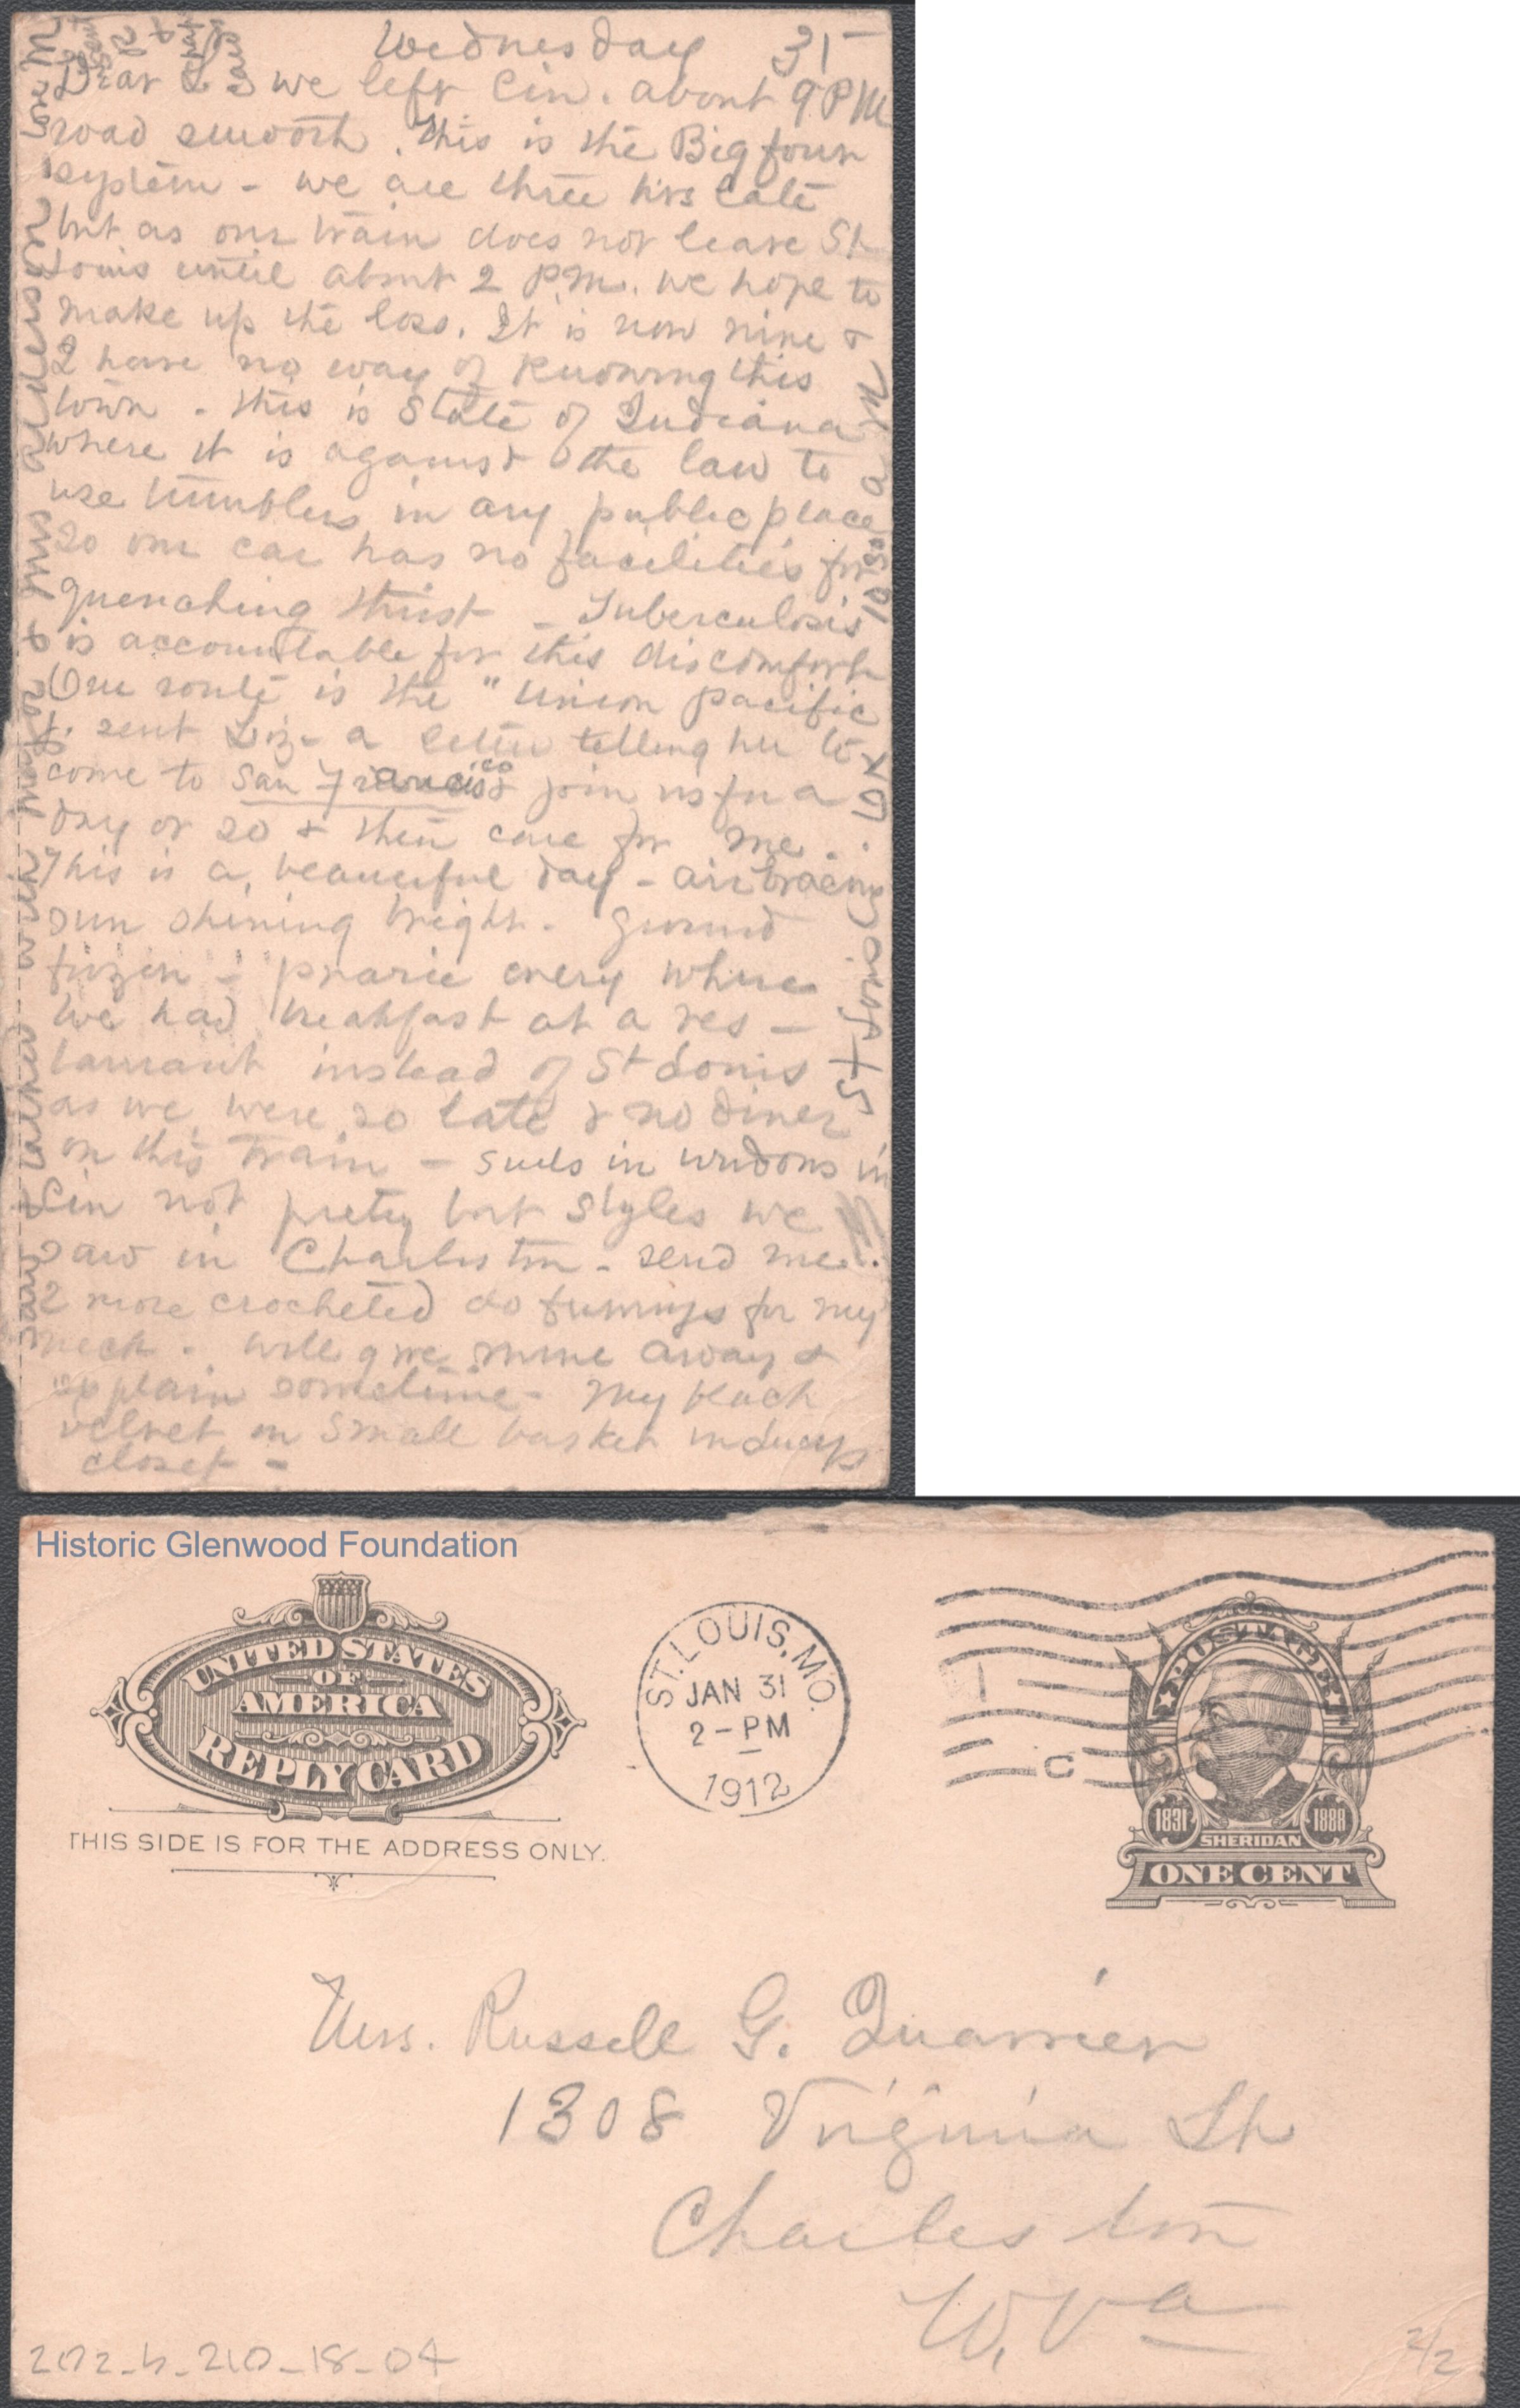 Wednesday 31-
Dear L. S we left Cin. about 9 PM
road smooth. This is the Big four
system - we are three hrs late
but as our train does not leave St
Louis until about 2 P.M. we hope to
make up the loss. It is now nine &
I have no way of knowing this
town. This is State of Indiana
where it is against the law to
use tumblers in any public place
so our car has no facilities for
quenching thirst - Tuberculosis
is accountable for this discomfort
Our route is the "Union Pacific
I. sent Liz - a letter telling her to
come to San Francisco & join us for a
day or so & then care for me.
This is a beautiful day - air bracing
sun shining bright. ground
frozen - prarie every where
We had breakfast at a res-
taurant instead of St Louis
as we were so late & no diner
on this train - suits in windows in
Cin not pretty but styles we
saw in Charleston - send me
2 more crocheted do funnys for my
neck. will give mine away &
explain sometime - My black
velvet in small basket in Lucys
closet -
St Louis 10 30 a m
saw father with major & Mrs Alderson
Historic Glenwood Foundation
UNITED STATES
OF
AMERICA
REPLY CARD
THIS SIDE IS FOR THE ADDRESS ONLY.
ST. LOUIS, MO.
JAN 31
2-PM
1912
C
POSTAGE
1831 1888
SHERIDAN
ONE CENT
Mrs. Russell G. Quarrier
1308 Virginia St
Charleston
W. Va
202-h-210-18-04
2/2